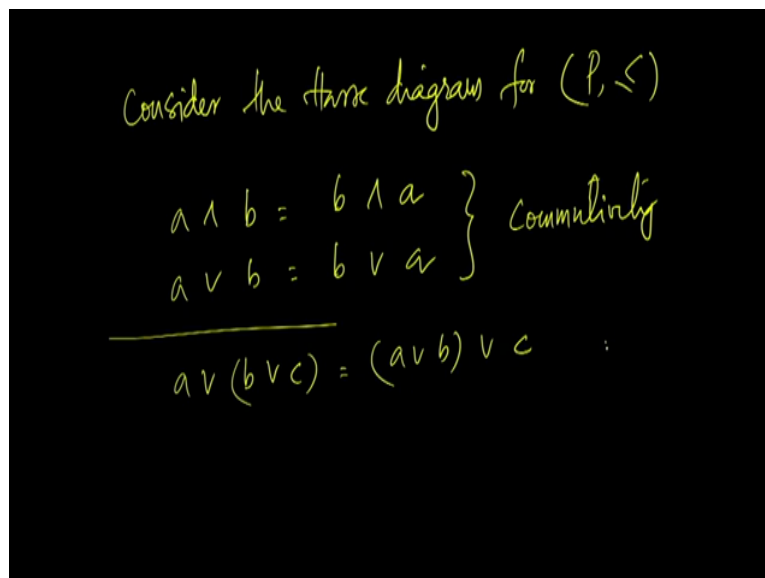 Consider the Hasse diagram for (P, ≤)
a ∧ b = b ∧ a
a ∨ b = b ∨ a } Commutivity
a ∨ (b ∨ c) = (a ∨ b) ∨ c :